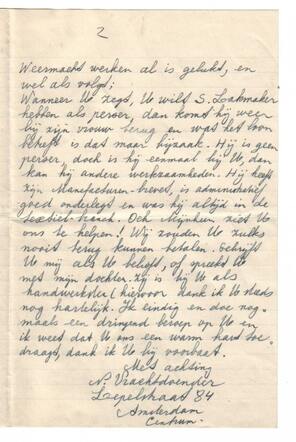 2
Weermacht werken al is gelukt, en
wel als volgt;
Wanneer U zegt, U wilt S. Loakmaker
hebben als perser, dan komt hij weer
bij zijn vrouw terug en wat het loon
betreft is dat maar bijzaak. Hij is geen
perser doch is hij eenmaal bij U, dan
kan hij andere werkzaamheden. Hij heeft
zijn Manufacturen-brevet, is administratief
goed onderlegt en was hij altijd in de
textiel-branch. Och Mijnheer ziet U
ons te helpen! Wij zouden U zulks
nooit terug kunnen betalen. Schrijft
U mij als U belieft, of spreekt U
met mijn dochter. Zij is bij U als
handwerkster (hiervoor dank ik U steeds
nog hartelijk. Ik eindig en doe nog-
maals een dringend beroep op U en
ik weet dat U ons een warm hart toe-
draagt, dank ik U bij voorbaat.
Met achting
N. Vrachtdoender
Lepelstraat 84
Amsterdam
Centrum.